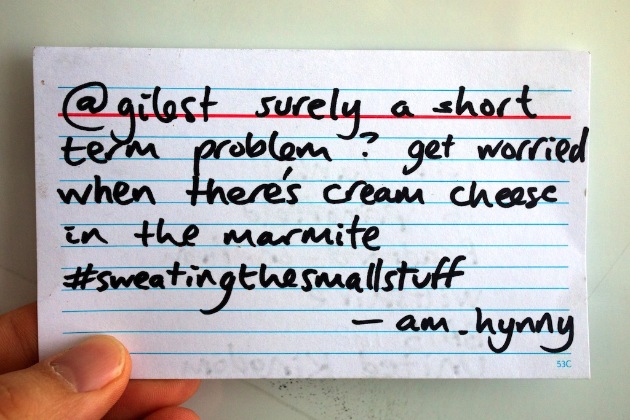 @gilest surely a short
term problem? get worried
when there's cream cheese
in the marmite
#sweatingthesmallstuff
— am_hynny
53C